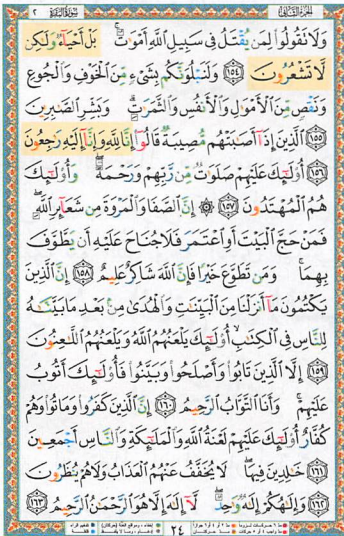 الجزء الثاني سورة البقرة ٢
وَلَا تَقُولُوا۟ لِمَن يُقْتَلُ فِى سَبِيلِ ٱللَّهِ أَمْوَٰتٌۢ بَلْ أَحْيَآءٌ وَلَٰكِن
لَّا تَشْعُرُونَ ١٥٤ وَلَنَبْلُوَنَّكُم بِشَىْءٍ مِّنَ ٱلْخَوْفِ وَٱلْجُوعِ
وَنَقْصٍ مِّنَ ٱلْأَمْوَٰلِ وَٱلْأَنفُسِ وَٱلثَّمَرَٰتِ وَبَشِّرِ ٱلصَّٰبِرِينَ
١٥٥ ٱلَّذِينَ إِذَآ أَصَٰبَتْهُم مُّصِيبَةٌ قَالُوٓا۟ إِنَّا لِلَّهِ وَإِنَّآ إِلَيْهِ رَٰجِعُونَ
١٥٦ أُو۟لَٰٓئِكَ عَلَيْهِمْ صَلَوَٰتٌ مِّن رَّبِّهِمْ وَرَحْمَةٌ وَأُو۟لَٰٓئِكَ
هُمُ ٱلْمُهْتَدُونَ ١٥٧ ۞ إِنَّ ٱلصَّفَا وَٱلْمَرْوَةَ مِن شَعَآئِرِ ٱللَّهِ
فَمَنْ حَجَّ ٱلْبَيْتَ أَوِ ٱعْتَمَرَ فَلَا جُنَاحَ عَلَيْهِ أَن يَطَّوَّفَ
بِهِمَا وَمَن تَطَوَّعَ خَيْرًا فَإِنَّ ٱللَّهَ شَاكِرٌ عَلِيمٌ ١٥٨ إِنَّ ٱلَّذِينَ
يَكْتُمُونَ مَآ أَنزَلْنَا مِنَ ٱلْبَيِّنَٰتِ وَٱلْهُدَىٰ مِنۢ بَعْدِ مَا بَيَّنَّٰهُ
لِلنَّاسِ فِى ٱلْكِتَٰبِ أُو۟لَٰٓئِكَ يَلْعَنُهُمُ ٱللَّهُ وَيَلْعَنُهُمُ ٱللَّٰعِنُونَ
١٥٩ إِلَّا ٱلَّذِينَ تَابُوا۟ وَأَصْلَحُوا۟ وَبَيَّنُوا۟ فَأُو۟لَٰٓئِكَ أَتُوبُ
عَلَيْهِمْ وَأَنَا ٱلتَّوَّابُ ٱلرَّحِيمُ ١٦٠ إِنَّ ٱلَّذِينَ كَفَرُوا۟ وَمَاتُوا۟ وَهُمْ
كُفَّارٌ أُو۟لَٰٓئِكَ عَلَيْهِمْ لَعْنَةُ ٱللَّهِ وَٱلْمَلَٰٓئِكَةِ وَٱلنَّاسِ أَجْمَعِينَ
١٦١ خَٰلِدِينَ فِيهَا لَا يُخَفَّفُ عَنْهُمُ ٱلْعَذَابُ وَلَا هُمْ يُنظَرُونَ
١٦٢ وَإِلَٰهُكُمْ إِلَٰهٌ وَٰحِدٌ لَّآ إِلَٰهَ إِلَّا هُوَ ٱلرَّحْمَٰنُ ٱلرَّحِيمُ ١٦٣
٢٤